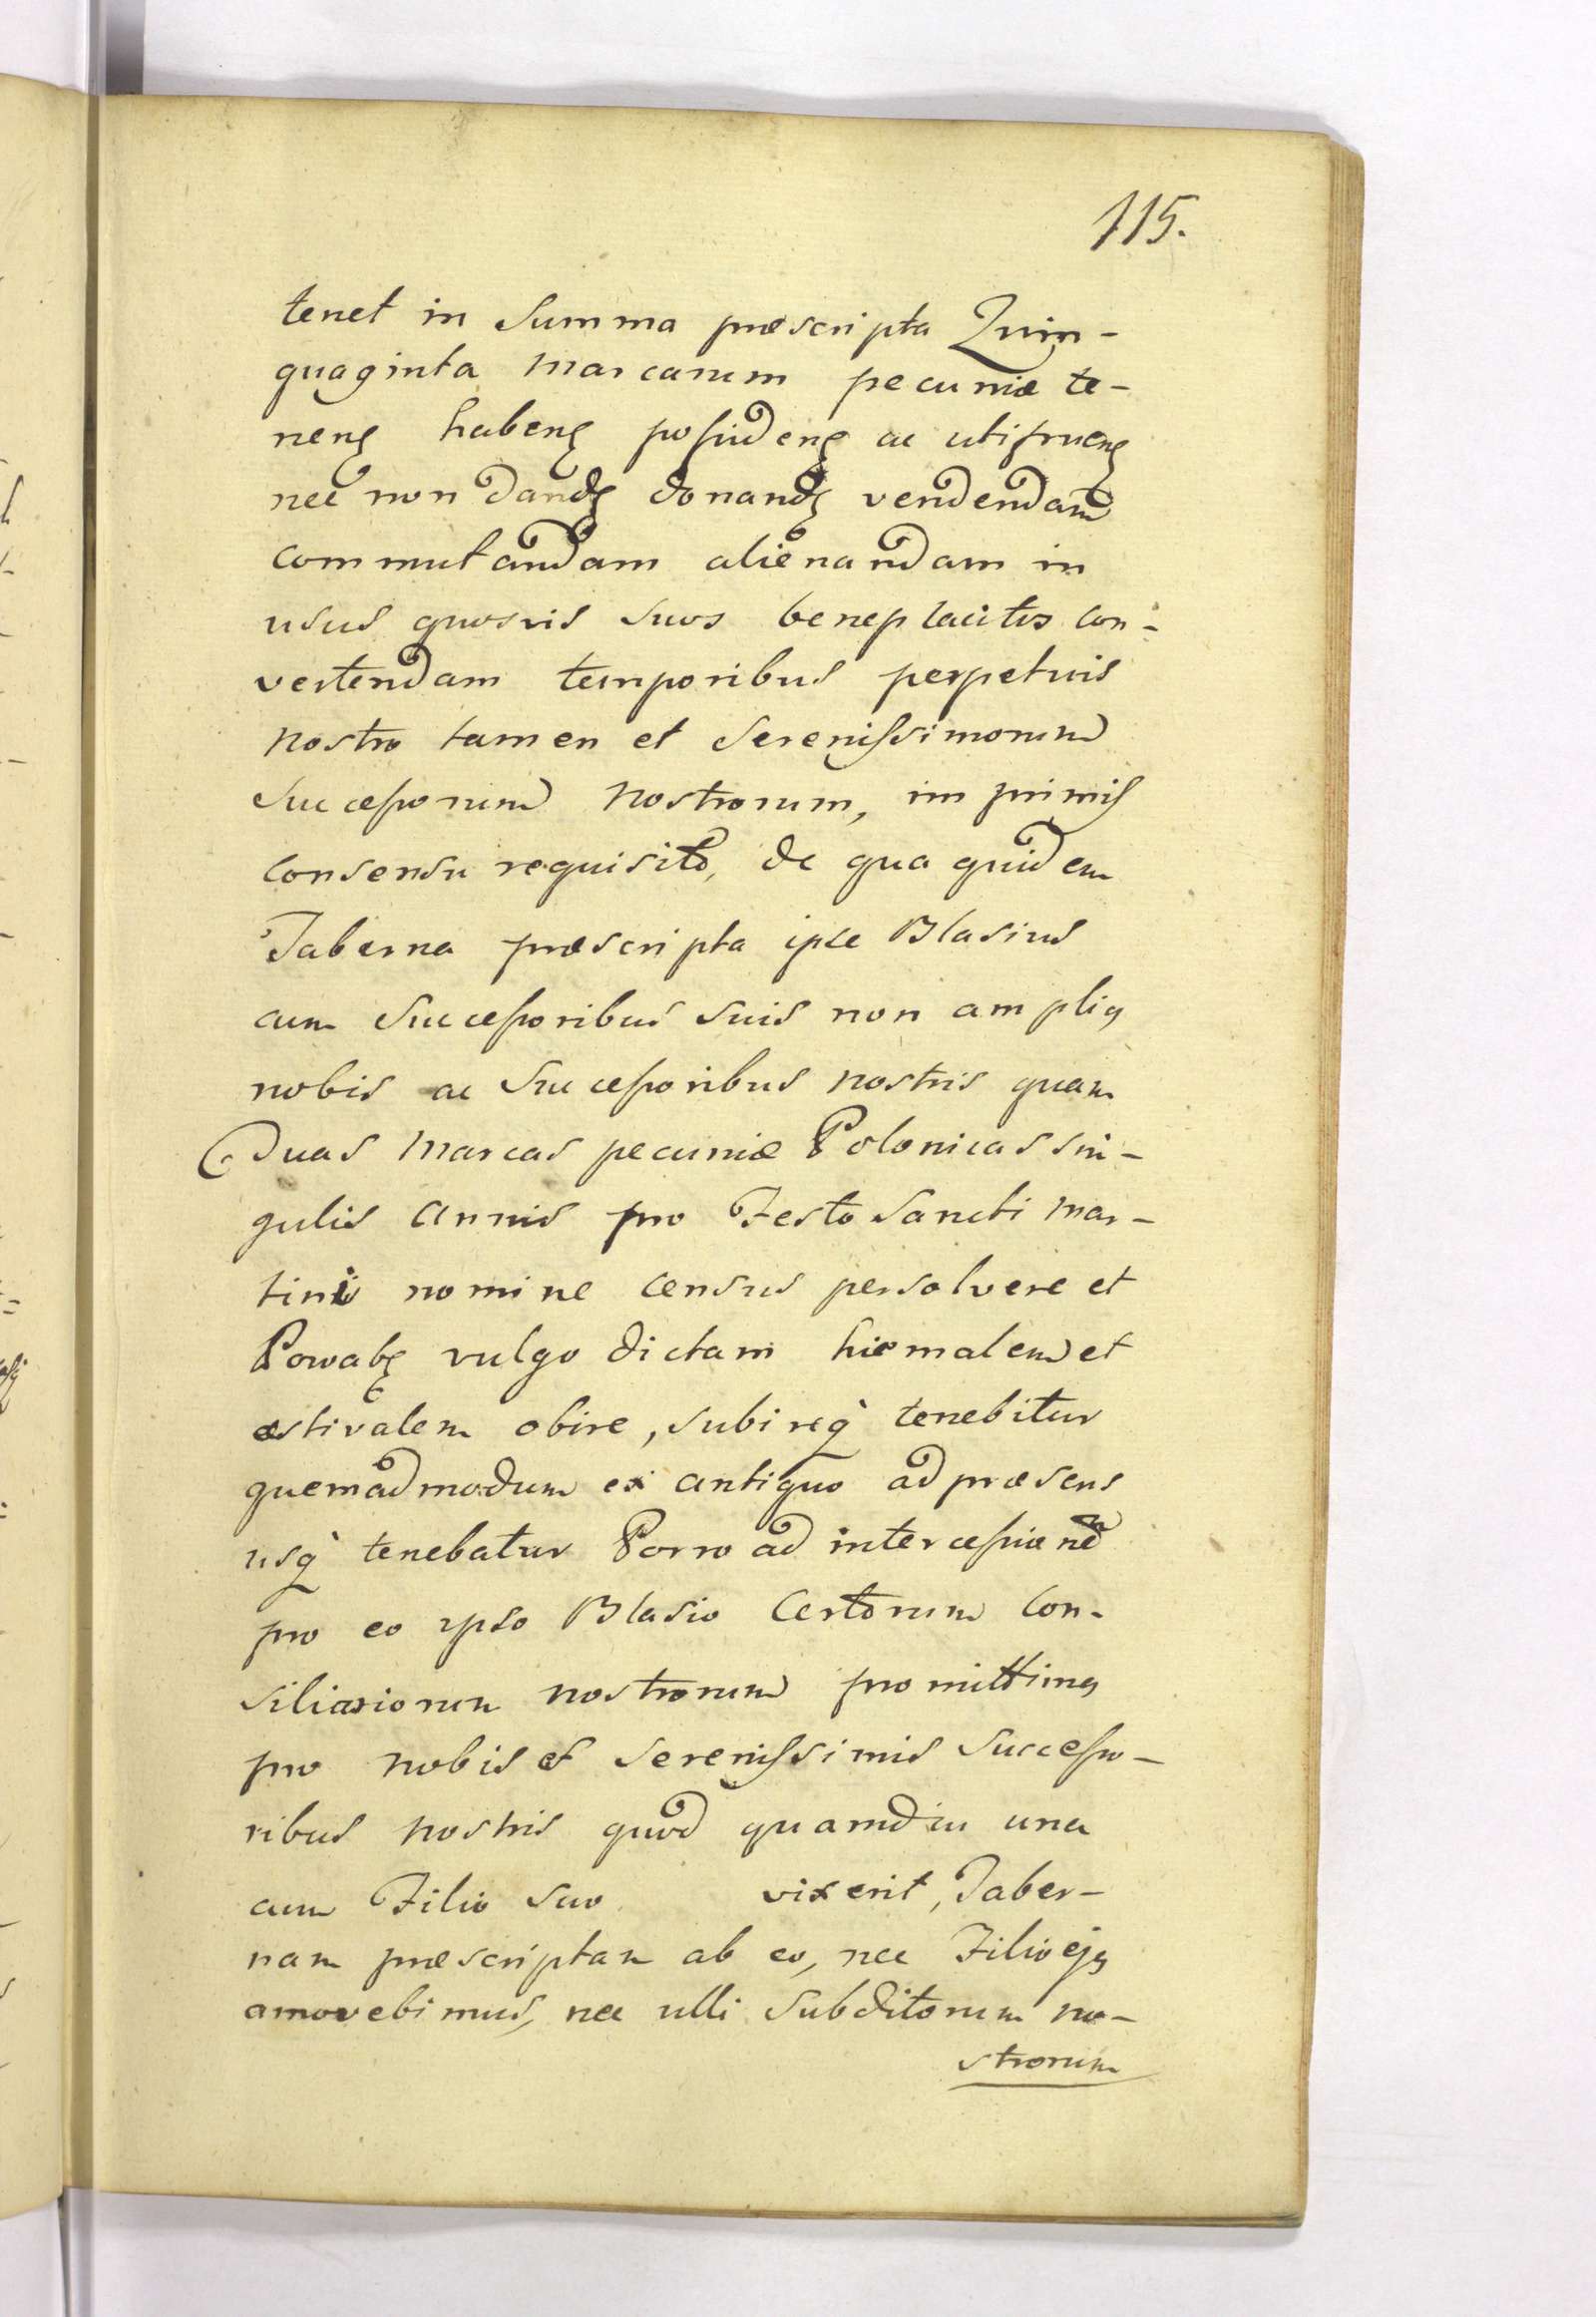 115.
tenet in Summa præscripta Quin-
quaginta Marcarum pecuniæ te-
nenꝫ habenꝫ possidenꝫ ac utifruenꝫ
nec non dandꝫ donandꝫ vendendam
commutandam alienandam in
usus quosvis suos beneplacitos con-
vertendam temporibus perpetuis
Nostro tamen et Serenissimorum
Successorum Nostrorum, im primis
consensu requisito, de qua quidem
Taberna præscripta ipse Blasius
cum Successoribus suis non ampliꝫ
nobis ac Successoribus nostris quam
Duas Marcas pecuniæ Polonicas sin-
gulis Annis pro Festo Sancti Mar-
tini nomine census persolvere et
Powabꝫ vulgo dictam hiemalem et
æstivalem obire, subireq̀ tenebitur
quemadmodum ex antiquo ad præsens
usq̀ tenebatur Porro ad intercessionem
pro eo ipso Blasio Certorum Con-
siliariorum nostrorum promittimꝫ
pro nobis et Serenissimis Successo-
ribus nostris quod quamdiu una
cum Filio suo vixerit, Taber-
nam præscriptam ab eo, nec Filio ejꝫ
amovebimus, nec ulli Subditorum no-
strorum